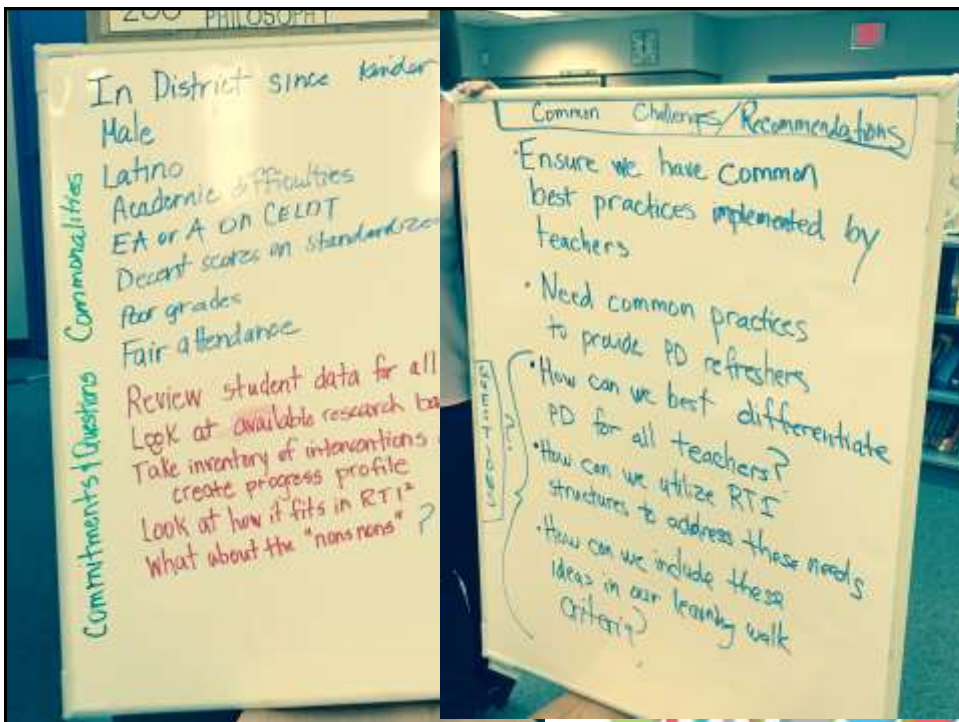 200 PHILOSOPHY
In District since kinder
Male
Latino
Academic difficulties
EA or A on CELDT
Decent scores on standardize
Poor grades
Fair attendance
Commonalities
Review student data for all
Look at available research ba
Take inventory of interventions
create progress profile
Look at how it fits in RTI²
What about the "nons nons" ?
Commitments & Questions
Common Challenges/Recommendations
• Ensure we have common
best practices implemented by
teachers
• Need common practices
to provide PD refreshers
• How can we best differentiate
PD for all teachers?
• How can we utilize RTI
structures to address these needs
• How can we include these
ideas in our learning walk
criteria?